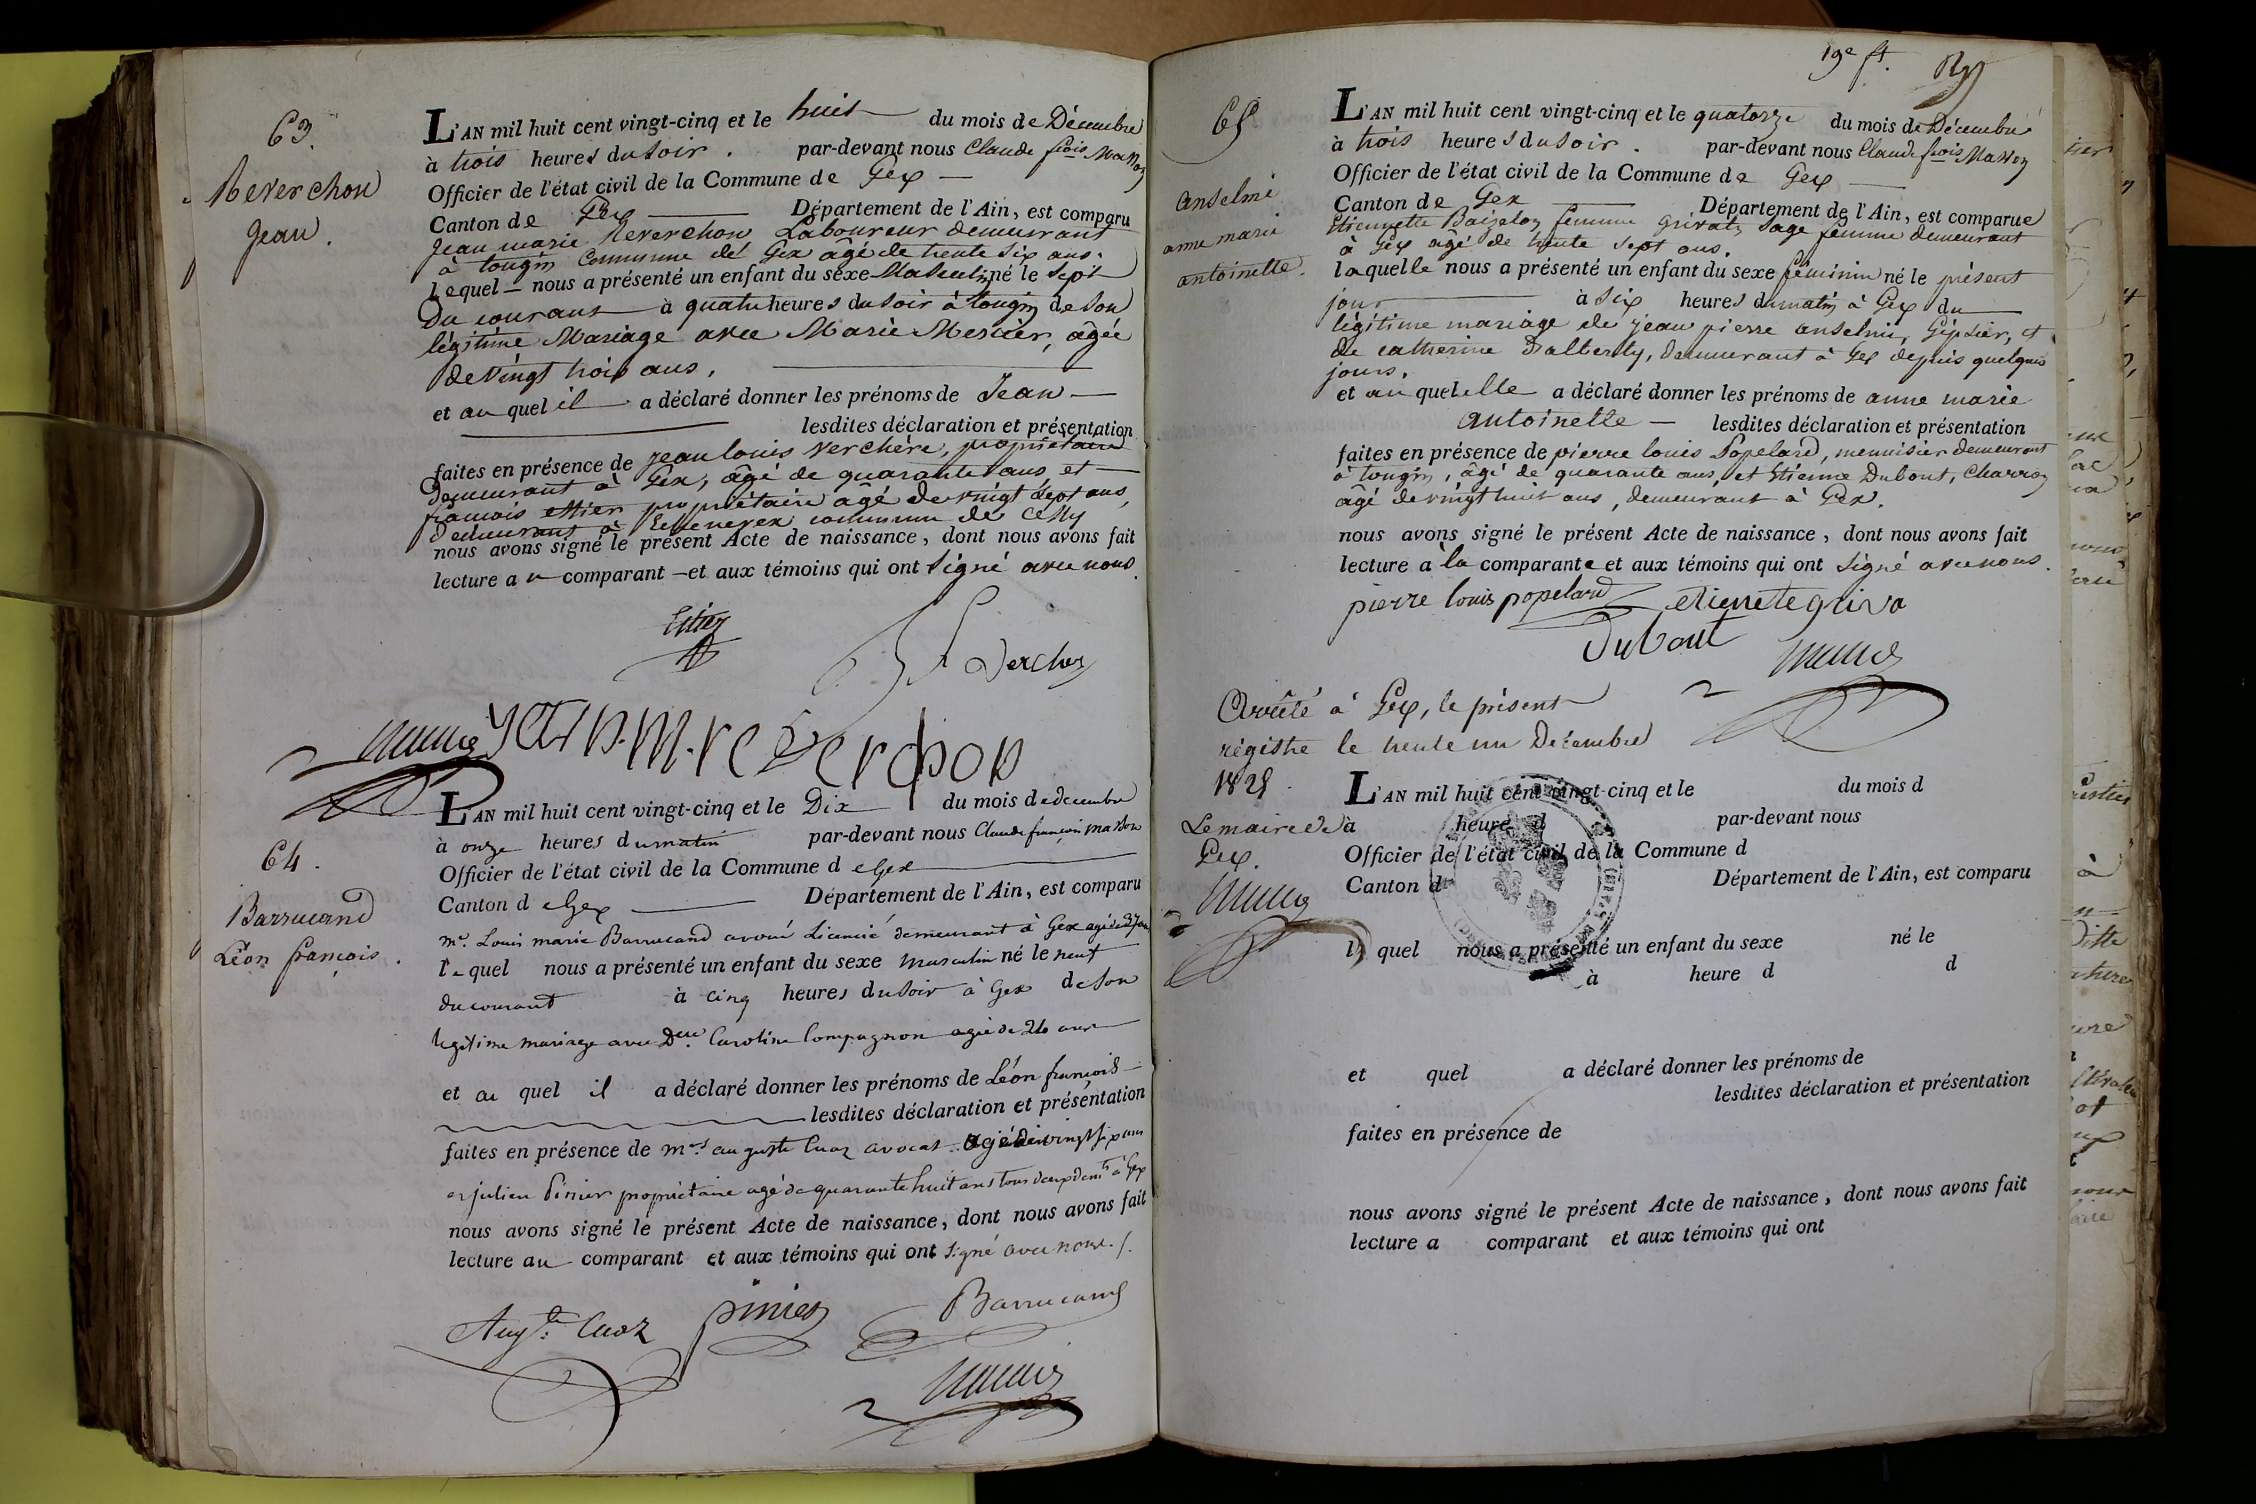 63.
Reverchon
Jean.
L'AN mil huit cent vingt-cinq et le huit du mois de Décembre
à trois heures du soir. par-devant nous Claude fçois Masson
Officier de l'état civil de la Commune de Gex
Canton de Gex Département de l'Ain, est comparu
Jean marie Reverchon Laboureur demeurant
à tougin Commune de Gex âgé de trente six ans.
lequel nous a présenté un enfant du sexe Masculin né le sept
du courant à quatre heures du soir à tougin de son
légitime Mariage avec Marie Mercier, âgée
de vingt trois ans,
et au quel il a déclaré donner les prénoms de Jean
lesdites déclaration et présentation
faites en présence de jean louis Verchère, propriétaire
demeurant à Gex, âgé de quarante ans, et
francois propriétaire agé de vingt sept ans,
demeurant à commune de Cessy
nous avons signé le présent Acte de naissance, dont nous avons fait
lecture au comparant et aux témoins qui ont signé avec nous.
jean.m.reverchon
64.
Barrucand
Léon françois.
L'AN mil huit cent vingt-cinq et le Dix du mois de decembre
à onze heures du matin par-devant nous Claude françois masson
Officier de l'état civil de la Commune de Gex
Canton de Gex Département de l'Ain, est comparu
mr. Louis marie Barrucand avoué Licencié demeurant à Gex agé de 37 ans
lequel nous a présenté un enfant du sexe masculin né le neuf
du courant à cinq heures du soir à Gex de son
legitime mariage avec Caroline Compagnon agée de ans
et au quel il a déclaré donner les prénoms de Léon françois
lesdites déclaration et présentation
faites en présence de mrs. auguste Cuaz avocat agé de vingt six ans
et julien Pinier propriétaire agé de quarante huit ans tous deux demts à Gex
nous avons signé le présent Acte de naissance, dont nous avons fait
lecture au comparant et aux témoins qui ont signé avec nous./.
Augte: Cuaz pinier Barrucand
19e ft.
65
anselmé
anne marie
antoinette.
L'AN mil huit cent vingt-cinq et le quatorze du mois de Décembre
à trois heures du soir. par-devant nous Claude fçois Masson
Officier de l'état civil de la Commune de Gex
Canton de Gex Département de l'Ain, est comparue
Etiennette femme grivat, sage femme demeurant
à Gex agé de trente sept ans.
laquelle nous a présenté un enfant du sexe féminin né le présent
jour à six heures du matin à Gex du
légitime mariage de jean pierre anselmé, Gipsier, et
de catherine demeurant à Gex depuis quelques
jours.
et au quel elle a déclaré donner les prénoms de anne marie
antoinette lesdites déclaration et présentation
faites en présence de pierre louis Popelard, menuisier demeurant
à tougin, âgé de quarante ans, et Etienne Dubout, Charron
âgé de vingt huit ans, demeurant à Gex.
nous avons signé le présent Acte de naissance, dont nous avons fait
lecture à la comparante et aux témoins qui ont signé avec nous.
pierre louis popelard etienete griva
Dubout
Arrêté à Gex, le présent
régistre le trente un Décembre
1825.
Le maire de
Gex.
L'AN mil huit cent vingt-cinq et le du mois d
à heure d par-devant nous
Officier de l'état civil de la Commune d
Canton d Département de l'Ain, est comparu
l quel nous a présenté un enfant du sexe né le
à heure d d
et quel a déclaré donner les prénoms de
lesdites déclaration et présentation
faites en présence de
nous avons signé le présent Acte de naissance, dont nous avons fait
lecture a comparant et aux témoins qui ont